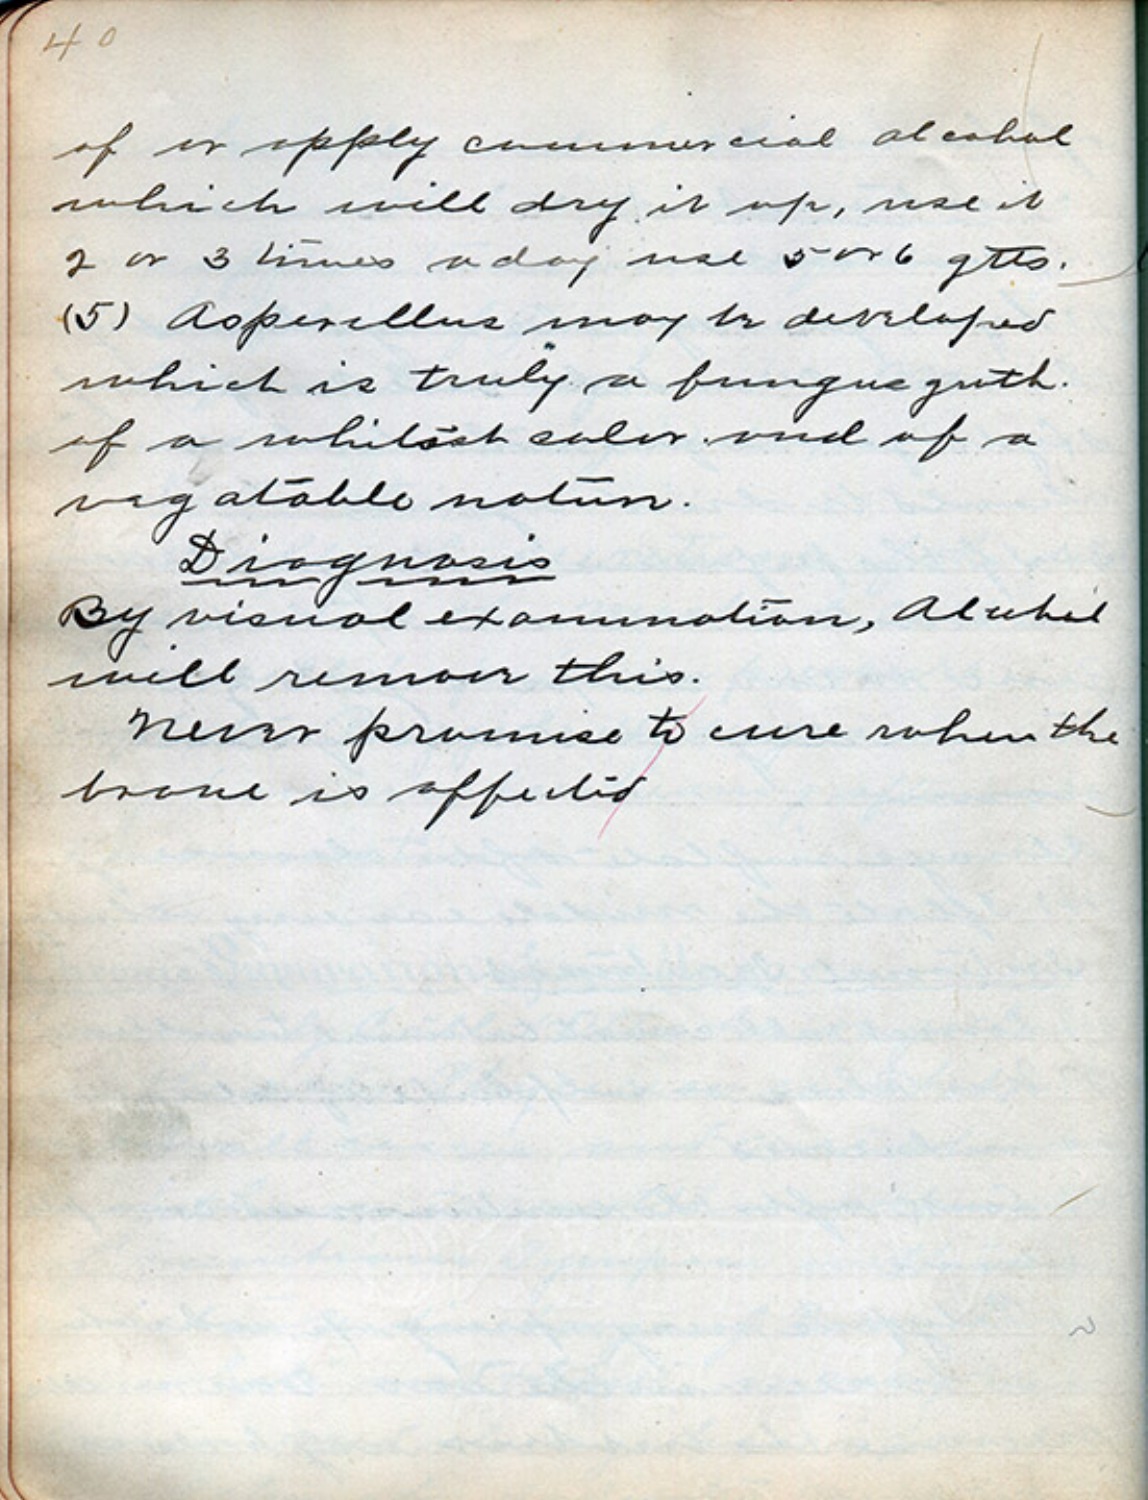 40
of or apply commercial alcohol
which will dry it up, use it
2 or 3 times a day use 5 or 6 gtts.
(5) Asperellus may be developed
which is truly a fungus guth.
of a whitish color and of a
vagatable nature.
Diagnosis
By visual examination, Alcohol
will remove this.
Never promise to cure when the
brone is affected